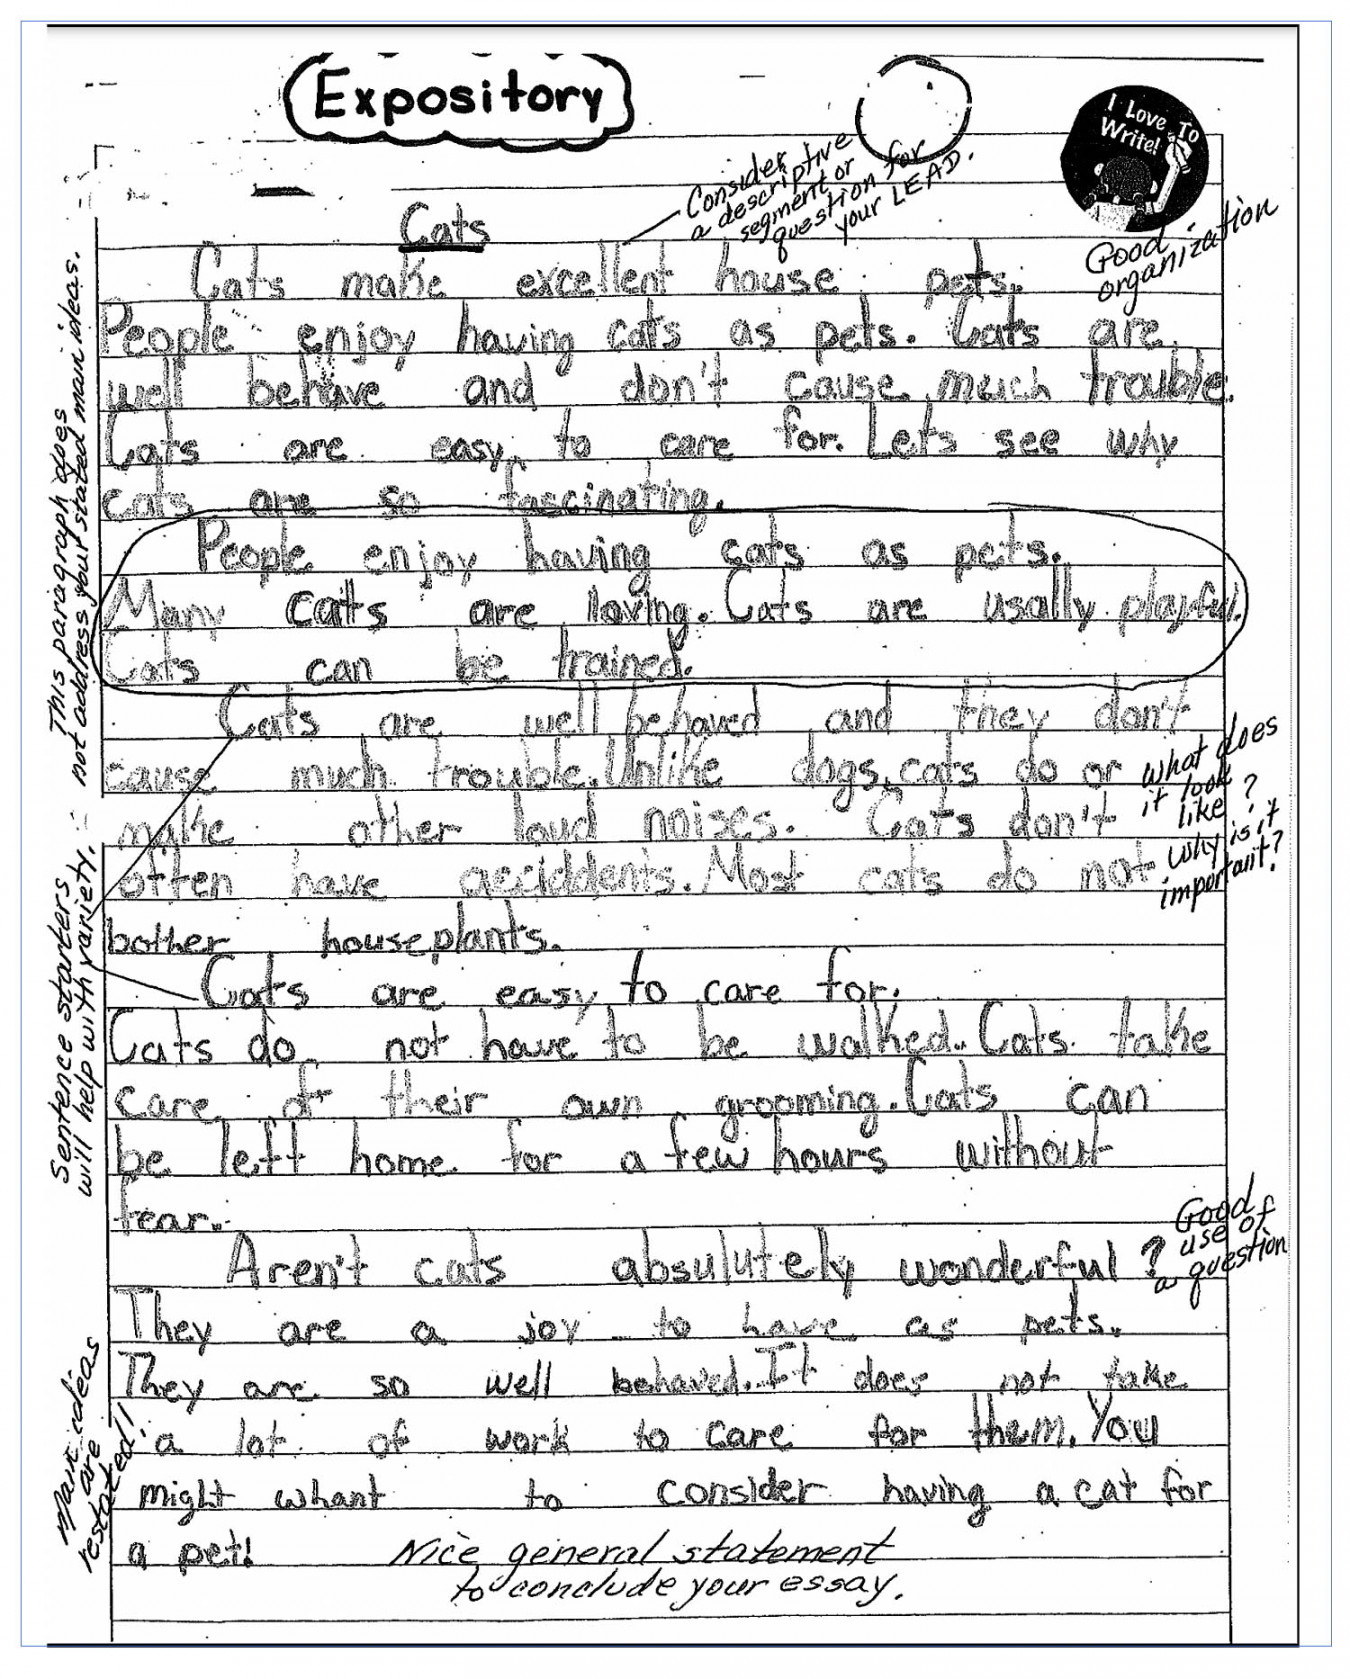 Expository
I Love To
Write!
Consider
a descriptive
segment or
question for
your LEAD.
Good
organization
Cats
Cats make excellent house pets.
People enjoy having cats as pets. Cats are
well behave and don't cause much trouble.
Cats are easy to care for. Lets see why
cats are so fascinating.
This paragraph does
not address your stated main ideas.
People enjoy having cats as pets.
Many cats are loving. Cats are usally playful.
Cats can be trained.
Cats are well behaved and they don't
cause much trouble. Unlike dogs, cats do or
make other loud noises. Cats don't
often have acciddents. Most cats do not
bother houseplants.
what does
it look
like?
why is it
important?
Sentence starters
will help with variety.
Cats are easy to care for.
Cats do not have to be walked. Cats take
care of their own grooming. Cats can
be left home for a few hours without
fear.
Aren't cats absulutely wonderful?
Good
use of
a question
They are a joy to have as pets.
They are so well behaved. It does not take
a lot of work to care for them. You
might whant to consider having a cat for
a pet!
Main ideas
are
restated!!
Nice general statement
to conclude your essay.